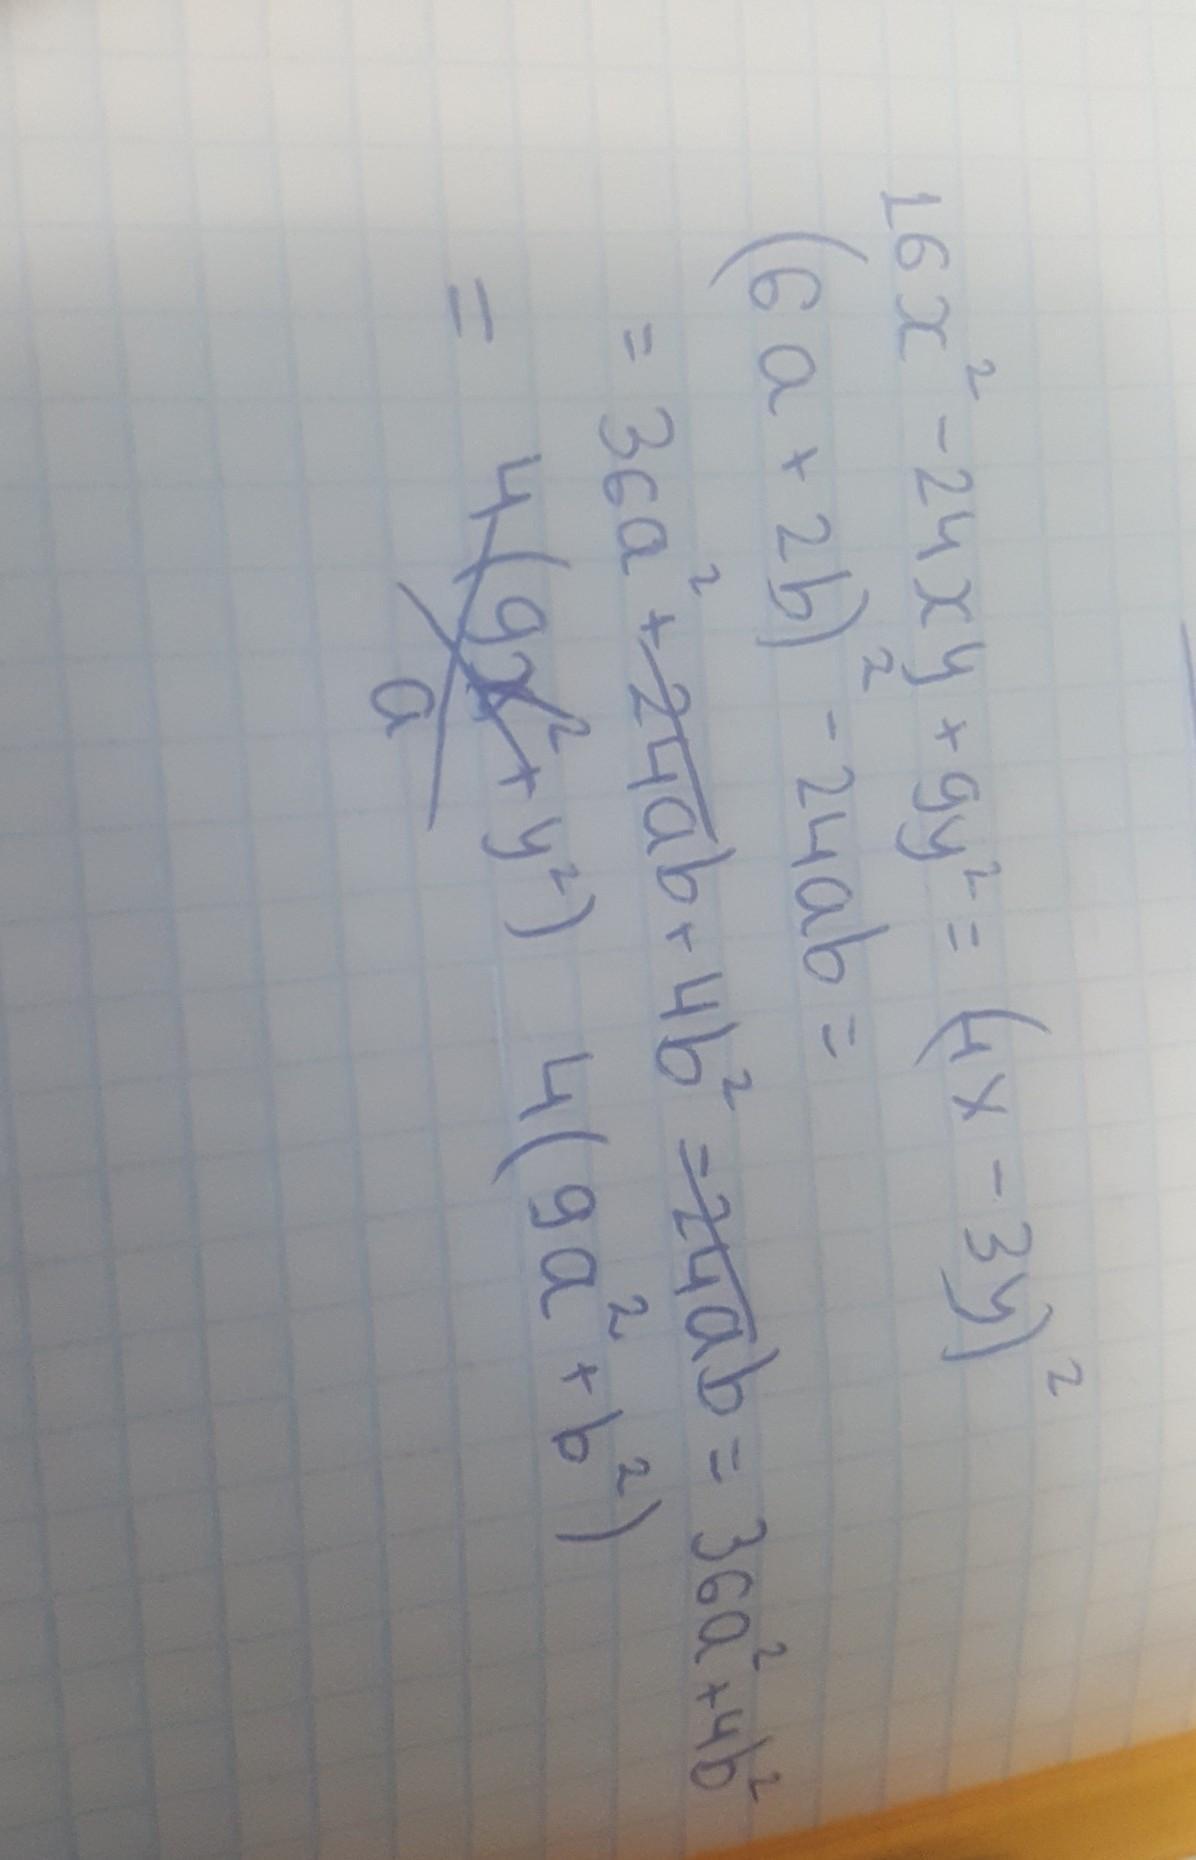 16x² - 24xy + 9y² = (4x - 3y)²
(6a + 2b)² - 24ab =
= 36a² + 24ab + 4b² - 24ab = 36a² + 4b²
= 4(9x² + y²) 4(9a² + b²)
a